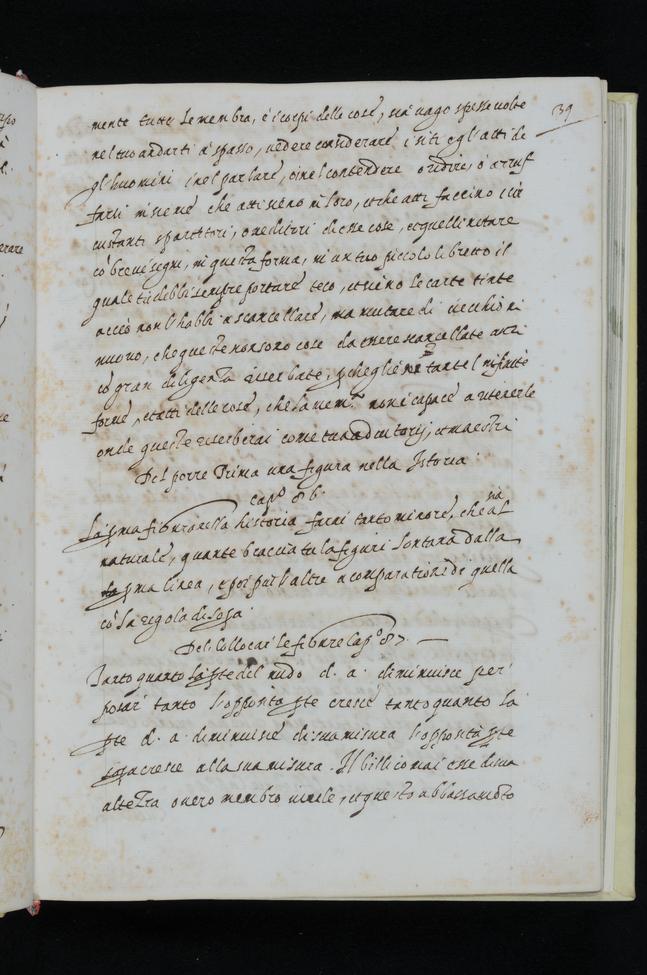 39
mente tutte le membra, è i corpi delle cose, sia vago spesse volte
nel tuo andarti à spasso, vedere considerare i siti e gl'atti de
gl'huomini inel parlare, einel contendere o ridire, ò azzuf
farsi insieme che atti sieno in loro, et che atti faccino i cir
custanti spartitori, o veditori di esse cose, et quelli notare
cò brevi segni, in questa forma, in un tuo piccolo libretto il
quale tù debbi sempre portare teco, et sieno le carte tinte
acciò non l'habbi a scancellare, ma mutare di vecchio in
nuovo, che queste non sono cose da essere scancellate anzi
cò gran diligenza riserbate, pche gliè tante l'infinite
forme, et atti delle cose, che la mem.ª non è capace a ritenerle
onde queste riserberai come tua adiutorij, et maestri
Del porre Prima una figura nella Istoria
cap.º 86.
La pma figura nella historia farai tanto minore, che
sia
al
naturale, quante braccia tu la figuri lontana dalla
pma linea, e poi più l'altre a comparatione di quella
cò la regola di sopa.
Del collocar le figure Cap.º 87.
Tanto quanto la pte del nudo d. a. diminuisce per
posar tanto l'opposita pte cresce tanto quanto la
pte d. a. diminuisce di sua misura l'opposita pte
sopa cresce alla sua misura. Il bellico mai esce di sua
altezza overo membro virile, et questo abbassamēto